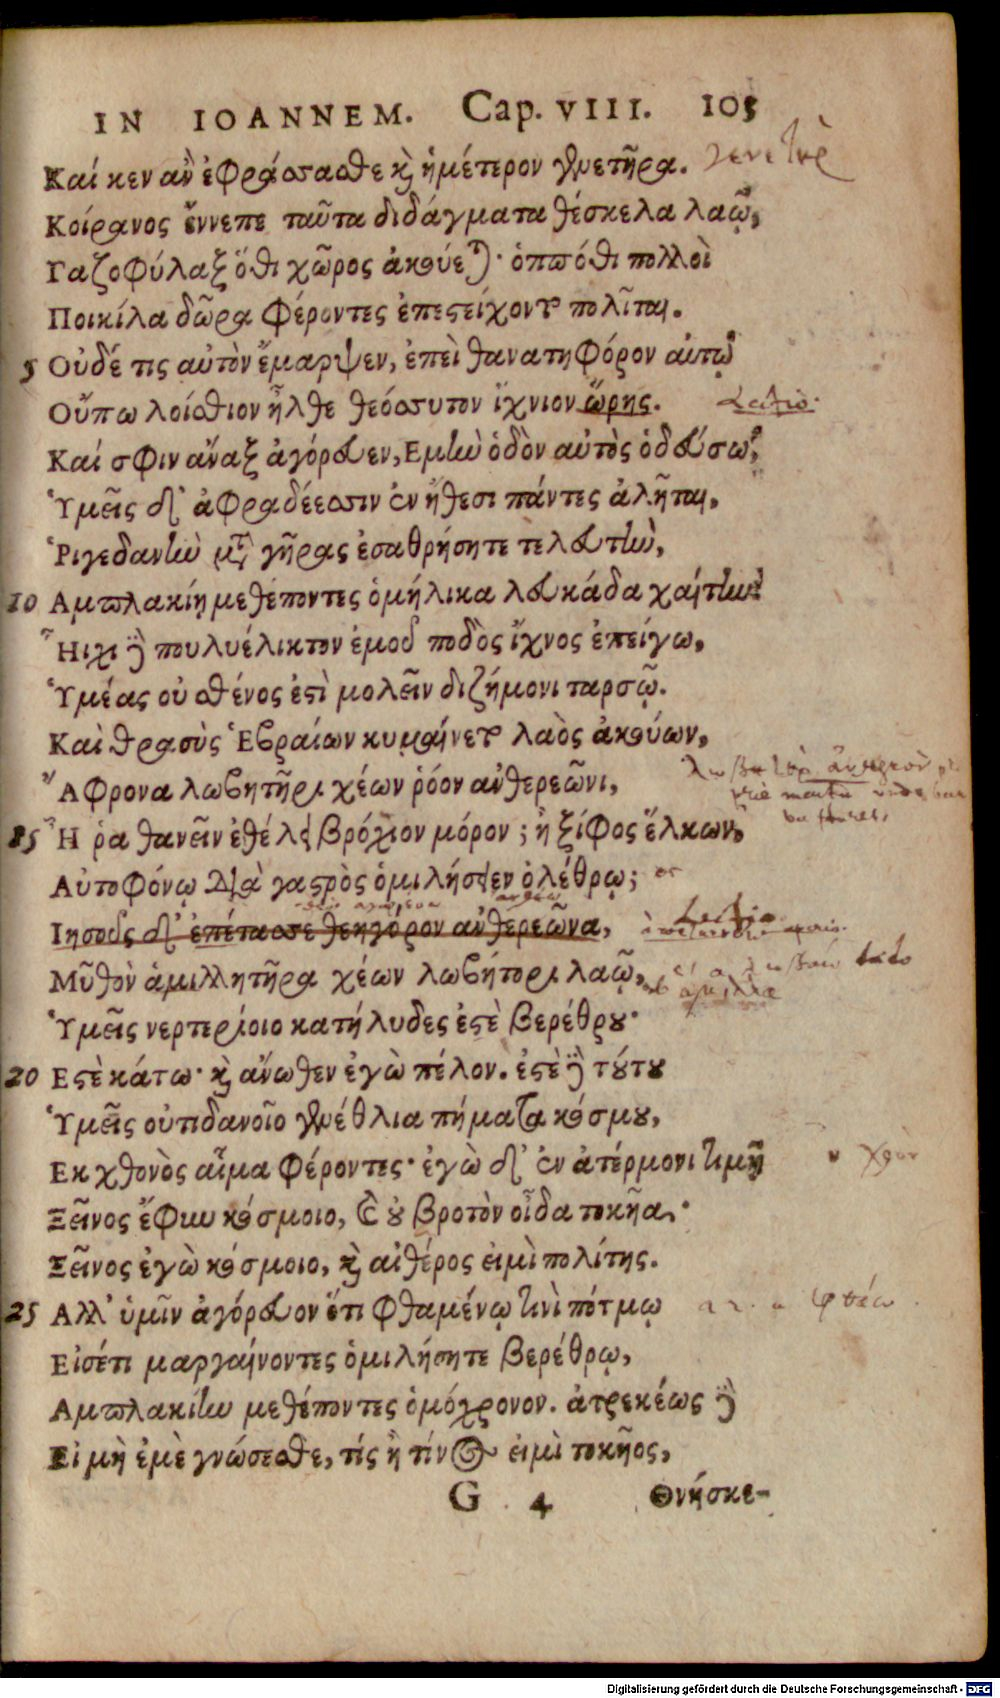 IN IOANNEM. Cap. VIII. 105
Καί κεν ἂν ἐφράσσασθε κὴ ἡμέτερον γενετῆρα.
Κοίρανος ἔννεπε ταῦτα διδάγματα θέσκελα λαῷ,
Γαζοφύλαξ ὅθι χῶρος ἀκούεται· ὁππόθι πολλοὶ
Ποικίλα δῶρα φέροντες ἐπεστείχοντο πολῖται.
5 Οὐδέ τις αὐτὸν ἔμαρψεν, ἐπεὶ θανατηφόρον αὐτῷ
Οὔπω λοίσθιον ἦλθε θεόσσυτον ἴχνιον ὥρης.
Καί σφιν ἄναξ ἀγόρευεν, Εμὴν ὁδὸν αὐτὸς ὁδεύσω,
Ὑμεῖς δ' ἀφραδέεσσιν ἐν ἤθεσι πάντες ἀλῆται,
Ῥιγεδανὴν μετὰ γῆρας ἐσαθρήσητε τελευτὴν,
10 Αμπλακίῃ μεθέποντες ὁμήλικα λευκάδα χαίτην.
Ἧιχι δὲ πουλυέλικτον ἐμοῦ ποδὸς ἴχνος ἐπείγω,
Ὑμέας οὐ σθένος ἐστὶ μολεῖν διζήμονι ταρσῷ.
Καὶ θρασὺς Ἑβραίων κυμαίνετο λαὸς ἀκούων,
Ἄφρονα λωβητῆρι χέων ῥόον ἀνθερεῶνι,
85 Ἦ ῥα θανεῖν ἐθέλει βρόχιον μόρον; ἢ ξίφος ἕλκων,
Αὐτοφόνῳ διὰ γαστρὸς ὁμιλήσειεν ὀλέθρῳ;
Ιησοῦς δ' ἐπέτασσε θεηγόρον ἀνθερεῶνα,
Μῦθον ἁμιλλητῆρα χέων λωβήτορι λαῷ,
Ὑμεῖς νερτερίοιο κατήλυδες ἐστὲ βερέθρου·
20 Εστὲ κάτω· κὴ ἄνωθεν ἐγὼ πέλον. ἐστὲ δὲ τούτου
Ὑμεῖς οὐτιδανοῖο γενέθλια πήματα κόσμου,
Εκ χθονὸς αἷμα φέροντες· ἐγὼ δ' ἐν ἀτέρμονι τιμῇ
Ξεῖνος ἔφυν κόσμοιο, καὶ οὐ βροτὸν οἶδα τοκῆα.
Ξεῖνος ἐγὼ κόσμοιο, κὴ αἰθέρος εἰμὶ πολίτης.
25 Αλλ' ὑμῖν ἀγόρευον ὅτι φθαμένῳ τινὶ πότμῳ
Εἰσέτι μαργαίνοντες ὁμιλήσητε βερέθρῳ,
Αμπλακίην μεθέποντες ὁμόχρονον. ἀτρεκέως δὲ
Εἰ μὴ ἐμὲ γνώσεσθε, τίς ἢ τίνος εἰμὶ τοκῆος,
G 4 Θνήσκε-
Digitalisierung gefördert durch die Deutsche Forschungsgemeinschaft - DFG